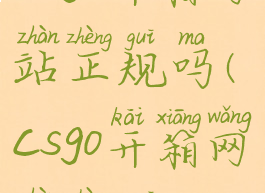 zhàn zhèng guī ma
站正规吗(
kāi xiāng wǎng
cs90开箱网